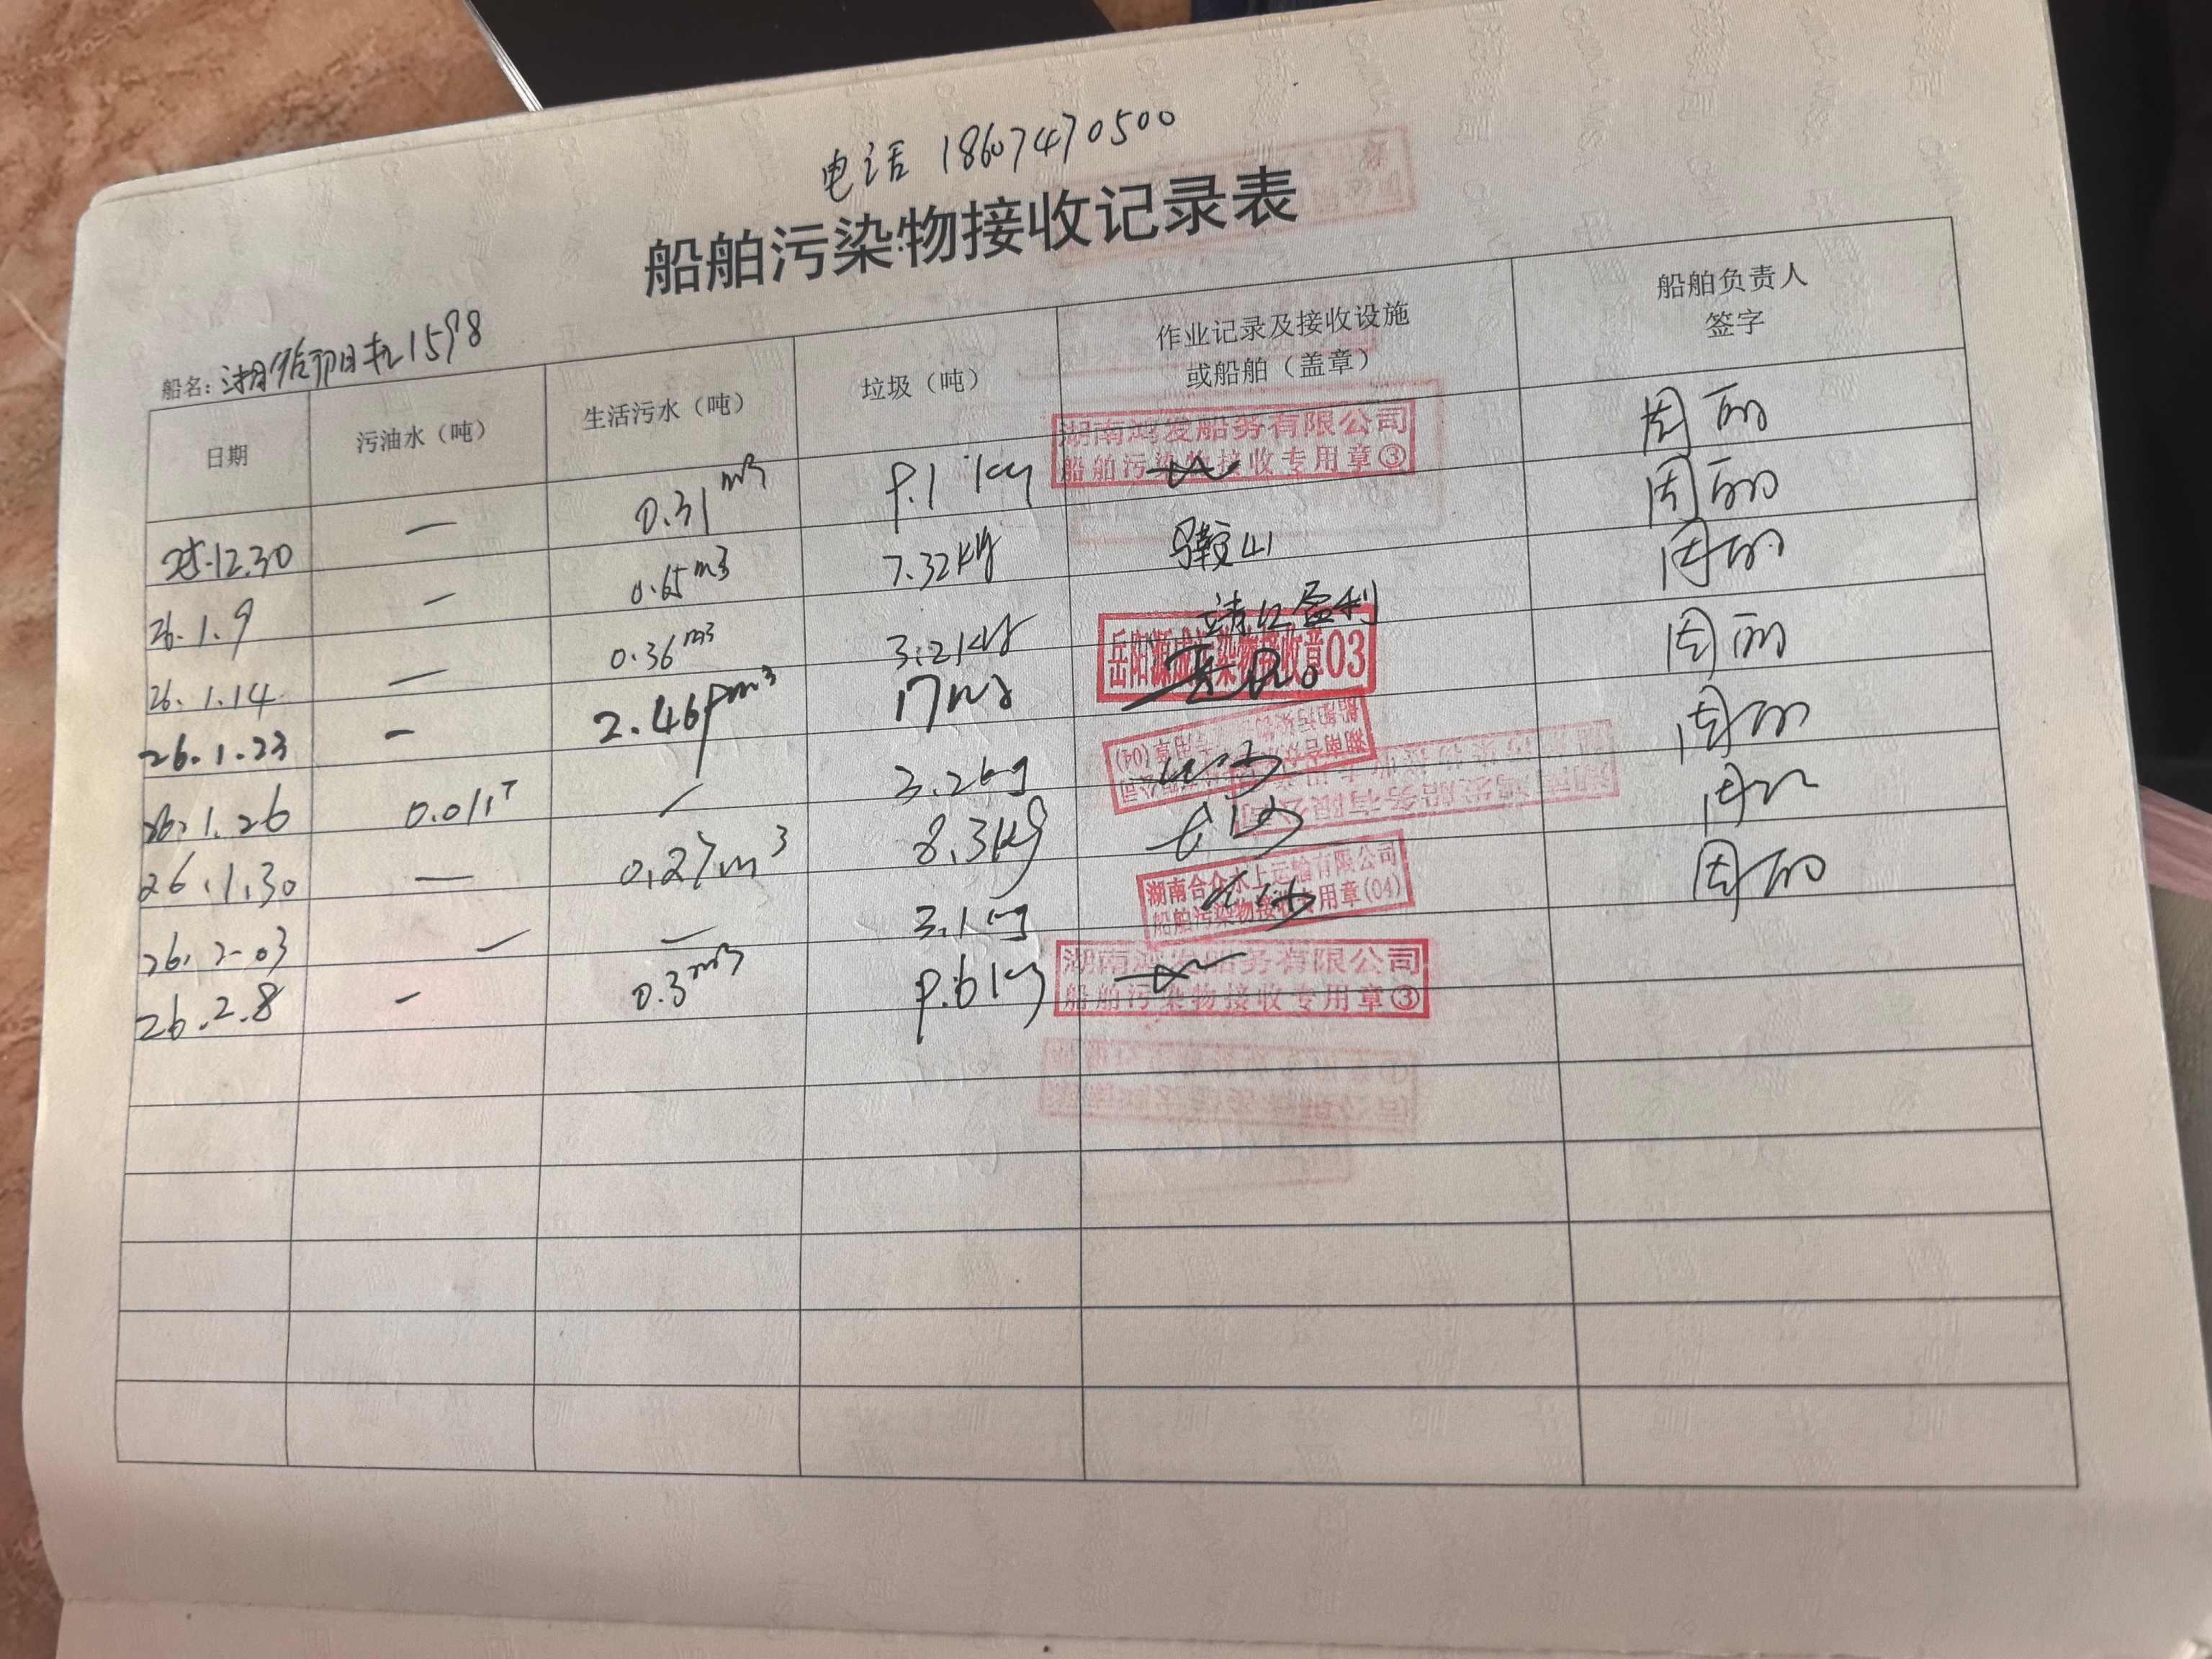 电话 18607470500
船舶污染物接收记录表
船名: 1598
日期 污油水（吨） 生活污水（吨） 垃圾（吨） 作业记录及接收设施或船舶（盖章） 船舶负责人签字
25.12.30 — 0.31 m³ 9.1 kg 湖南鸿发船务有限公司 船舶污染物接收专用章③ 周丽
26.1.9 — 0.65 m³ 7.32kg 马鞍山 周丽
26.1.14 — 0.36 m³ 3.2kg 靖江盈利 周丽
26.1.23 - m³ 岳阳源 污染物接收章03 周丽
26.1.26 0.011T / 3.2kg 湖南合众 (04) 周丽
26.1.30 — 0.27m³ 8.3kg 长沙 周
26.2.03 — — 3.1kg 湖南合众水上运输有限公司 船舶污染物接收专用章(04) 长沙 周丽
26.2.8 - 0.3m³ 9.6kg 湖南鸿发船务有限公司 船舶污染物接收专用章③